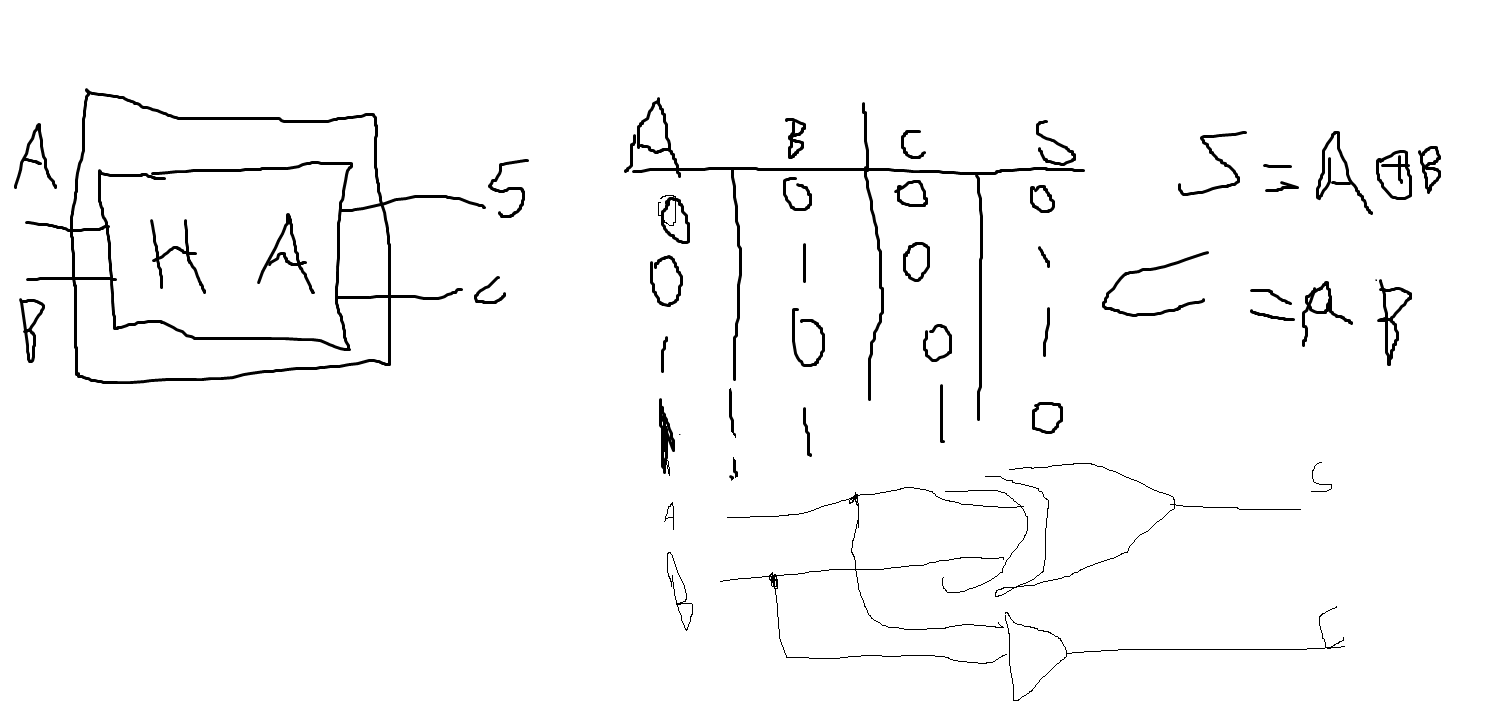 A
B
H A
S
C
A B C S
0 0 0 0
0 1 0 1
1 0 0 1
1 1 1 0
S = A ⊕ B
C = A B
A
B
S
C